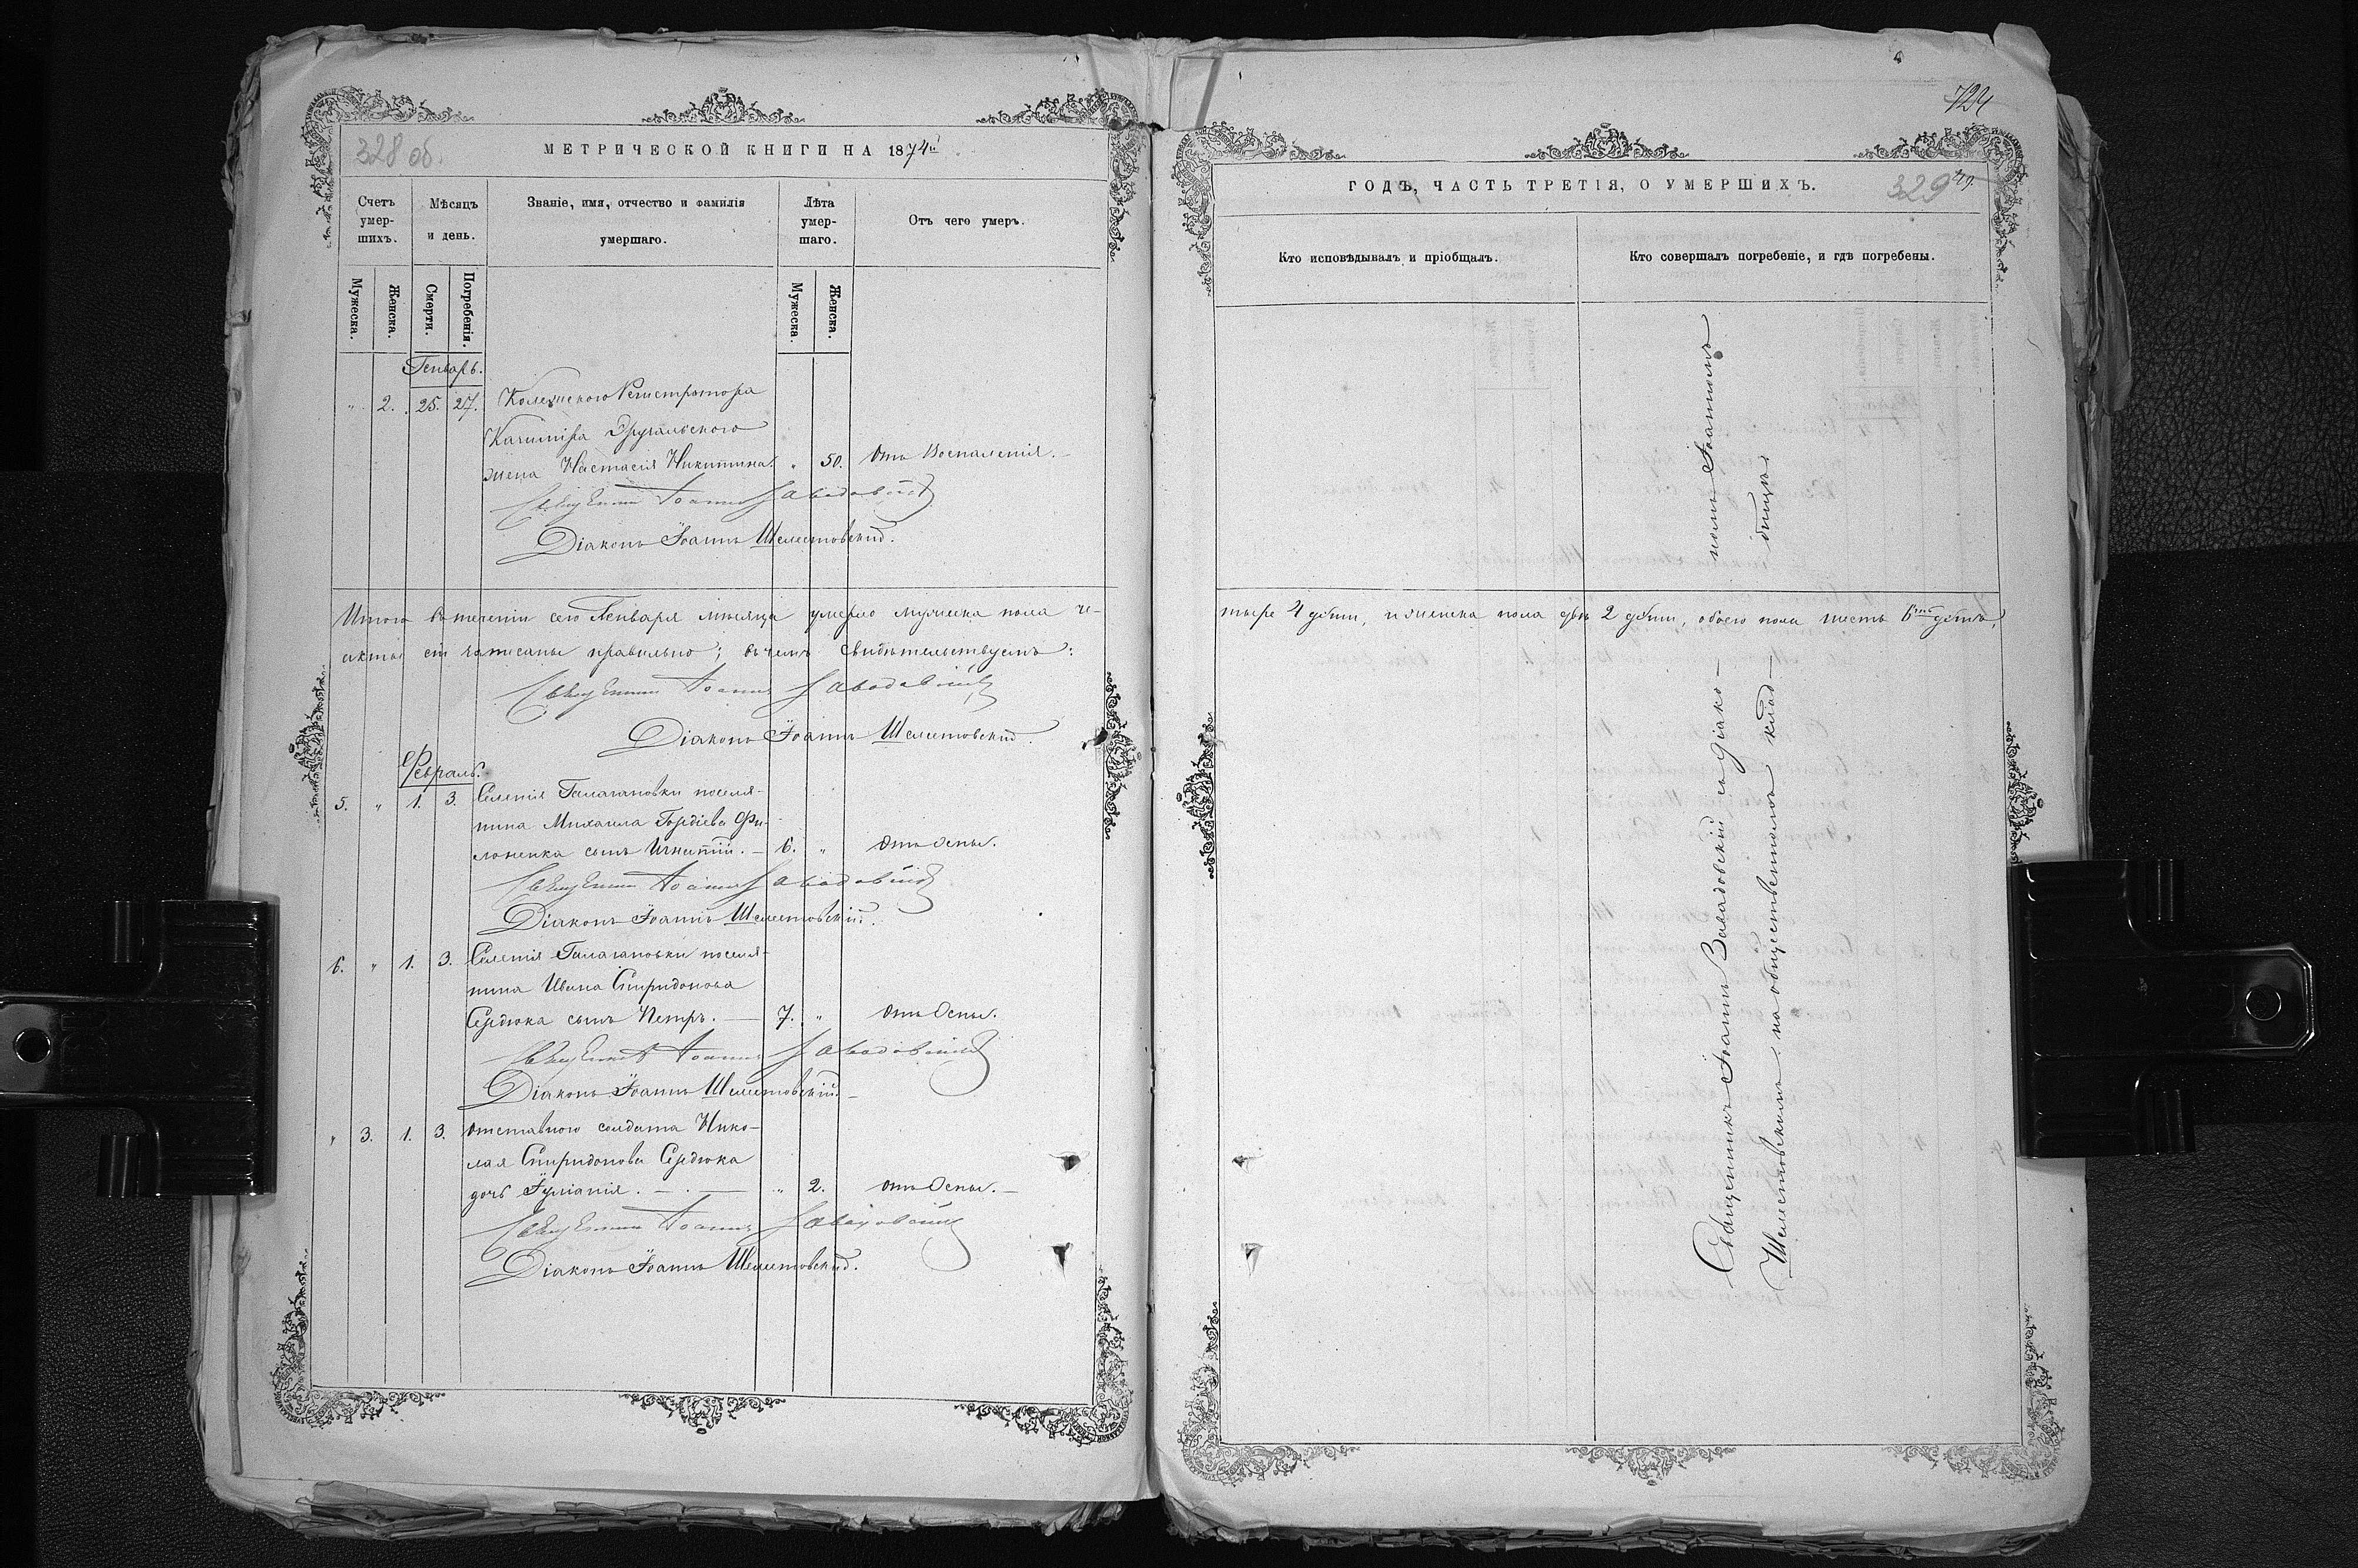 328 об.
МЕТРИЧЕСКОЙ КНИГИ НА 1874й
Счетъ умер-шихъ.
Мѣсяцъ и день.
Званіе, имя, отчество и фамилія умершаго.
Лѣта умер-шаго.
Отъ чего умеръ.
Мужеска.
Женска.
Смерти.
Погребенія.
Мужеска.
Женска.
Генварь.
" 2. 25. 27. Колежского Регистратора
Казиміра
жена Настасія Никитина. " 50. Отъ Воспаленія.
Священникъ Іоаннъ Завадовскій
Діаконъ Іоаннъ Шелестовскій.
Итого въ теченіи сего Генваря мѣсяца умерло мужеска пола че-
акты записаны правильно; въ чемъ свидѣтельствуемъ:
Священникъ Іоаннъ Завадовскій
Діаконъ Іоаннъ Шелестовскій.
Февраль.
5. " 1. 3. Селенія Галагановки поселя-
нина Михаила Гордіева Фи-
лоненка сынъ Игнатій. 6. " Отъ Оспы.
Священникъ Іоаннъ Завадовскій
Діаконъ Іоаннъ Шелестовскій.
6. " 1. 3. Селенія Галагановки поселя-
нина Ивана Спиридонова
Сердюка сынъ Петръ. 7. " Отъ Оспы.
Священникъ Іоаннъ Завадовскій
Діаконъ Іоаннъ Шелестовскій.
" 3. 1. 3. Отставного солдата Нико-
лая Спиридонова Сердюка
дочь Іуліанія. " 2. отъ Оспы.
Священникъ Іоаннъ Завадовскій
Діаконъ Іоаннъ Шелестовскій.
724
ГОДЪ, ЧАСТЬ ТРЕТІЯ, О УМЕРШИХЪ.
329
Кто исповѣдывалъ и пріобщалъ.
Кто совершалъ погребеніе, и гдѣ погребены.
тыре 4 души, и женска пола двѣ 2 души, обоего пола шесть 6ть душъ,
Священникъ Іоаннъ Завадовскій съ діако-
номъ Іоанномъ
Шелестовскимъ на общественномъ клад-
бищѣ